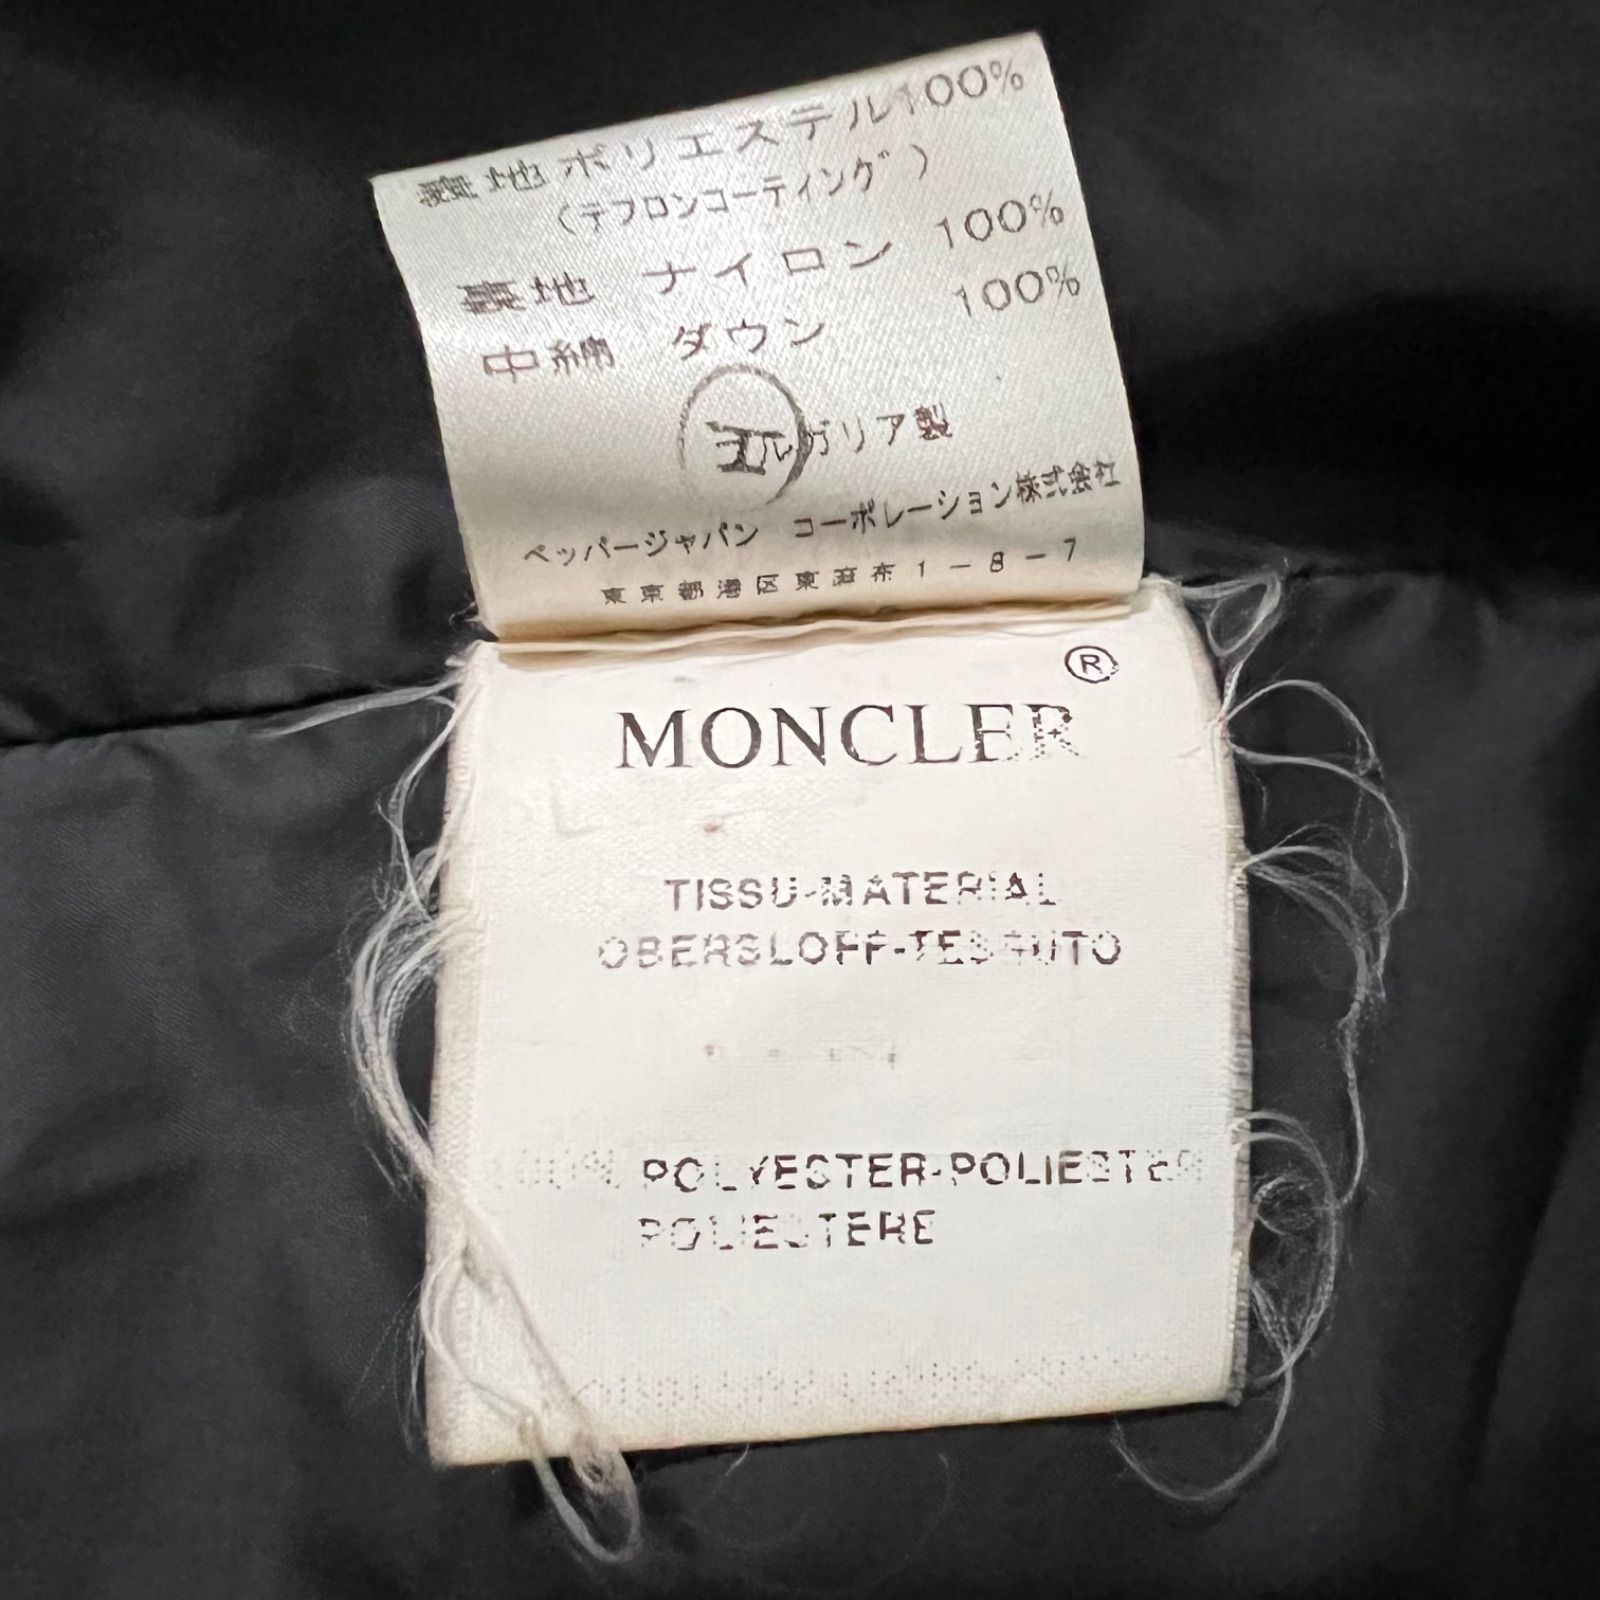 表地 ポリエステル 100%
(テフロンコーティング)
裏地 ナイロン 100%
中綿 ダウン 100%
ルガリア製
ペッパージャパン コーポレーション株式会社
東京都港区東麻布1-8-7
MONCLER ®
TISSU-MATERIAL
OBERSLOFF-TESSUTO
100% POLYESTER-POLIESTER
POLIESTERE